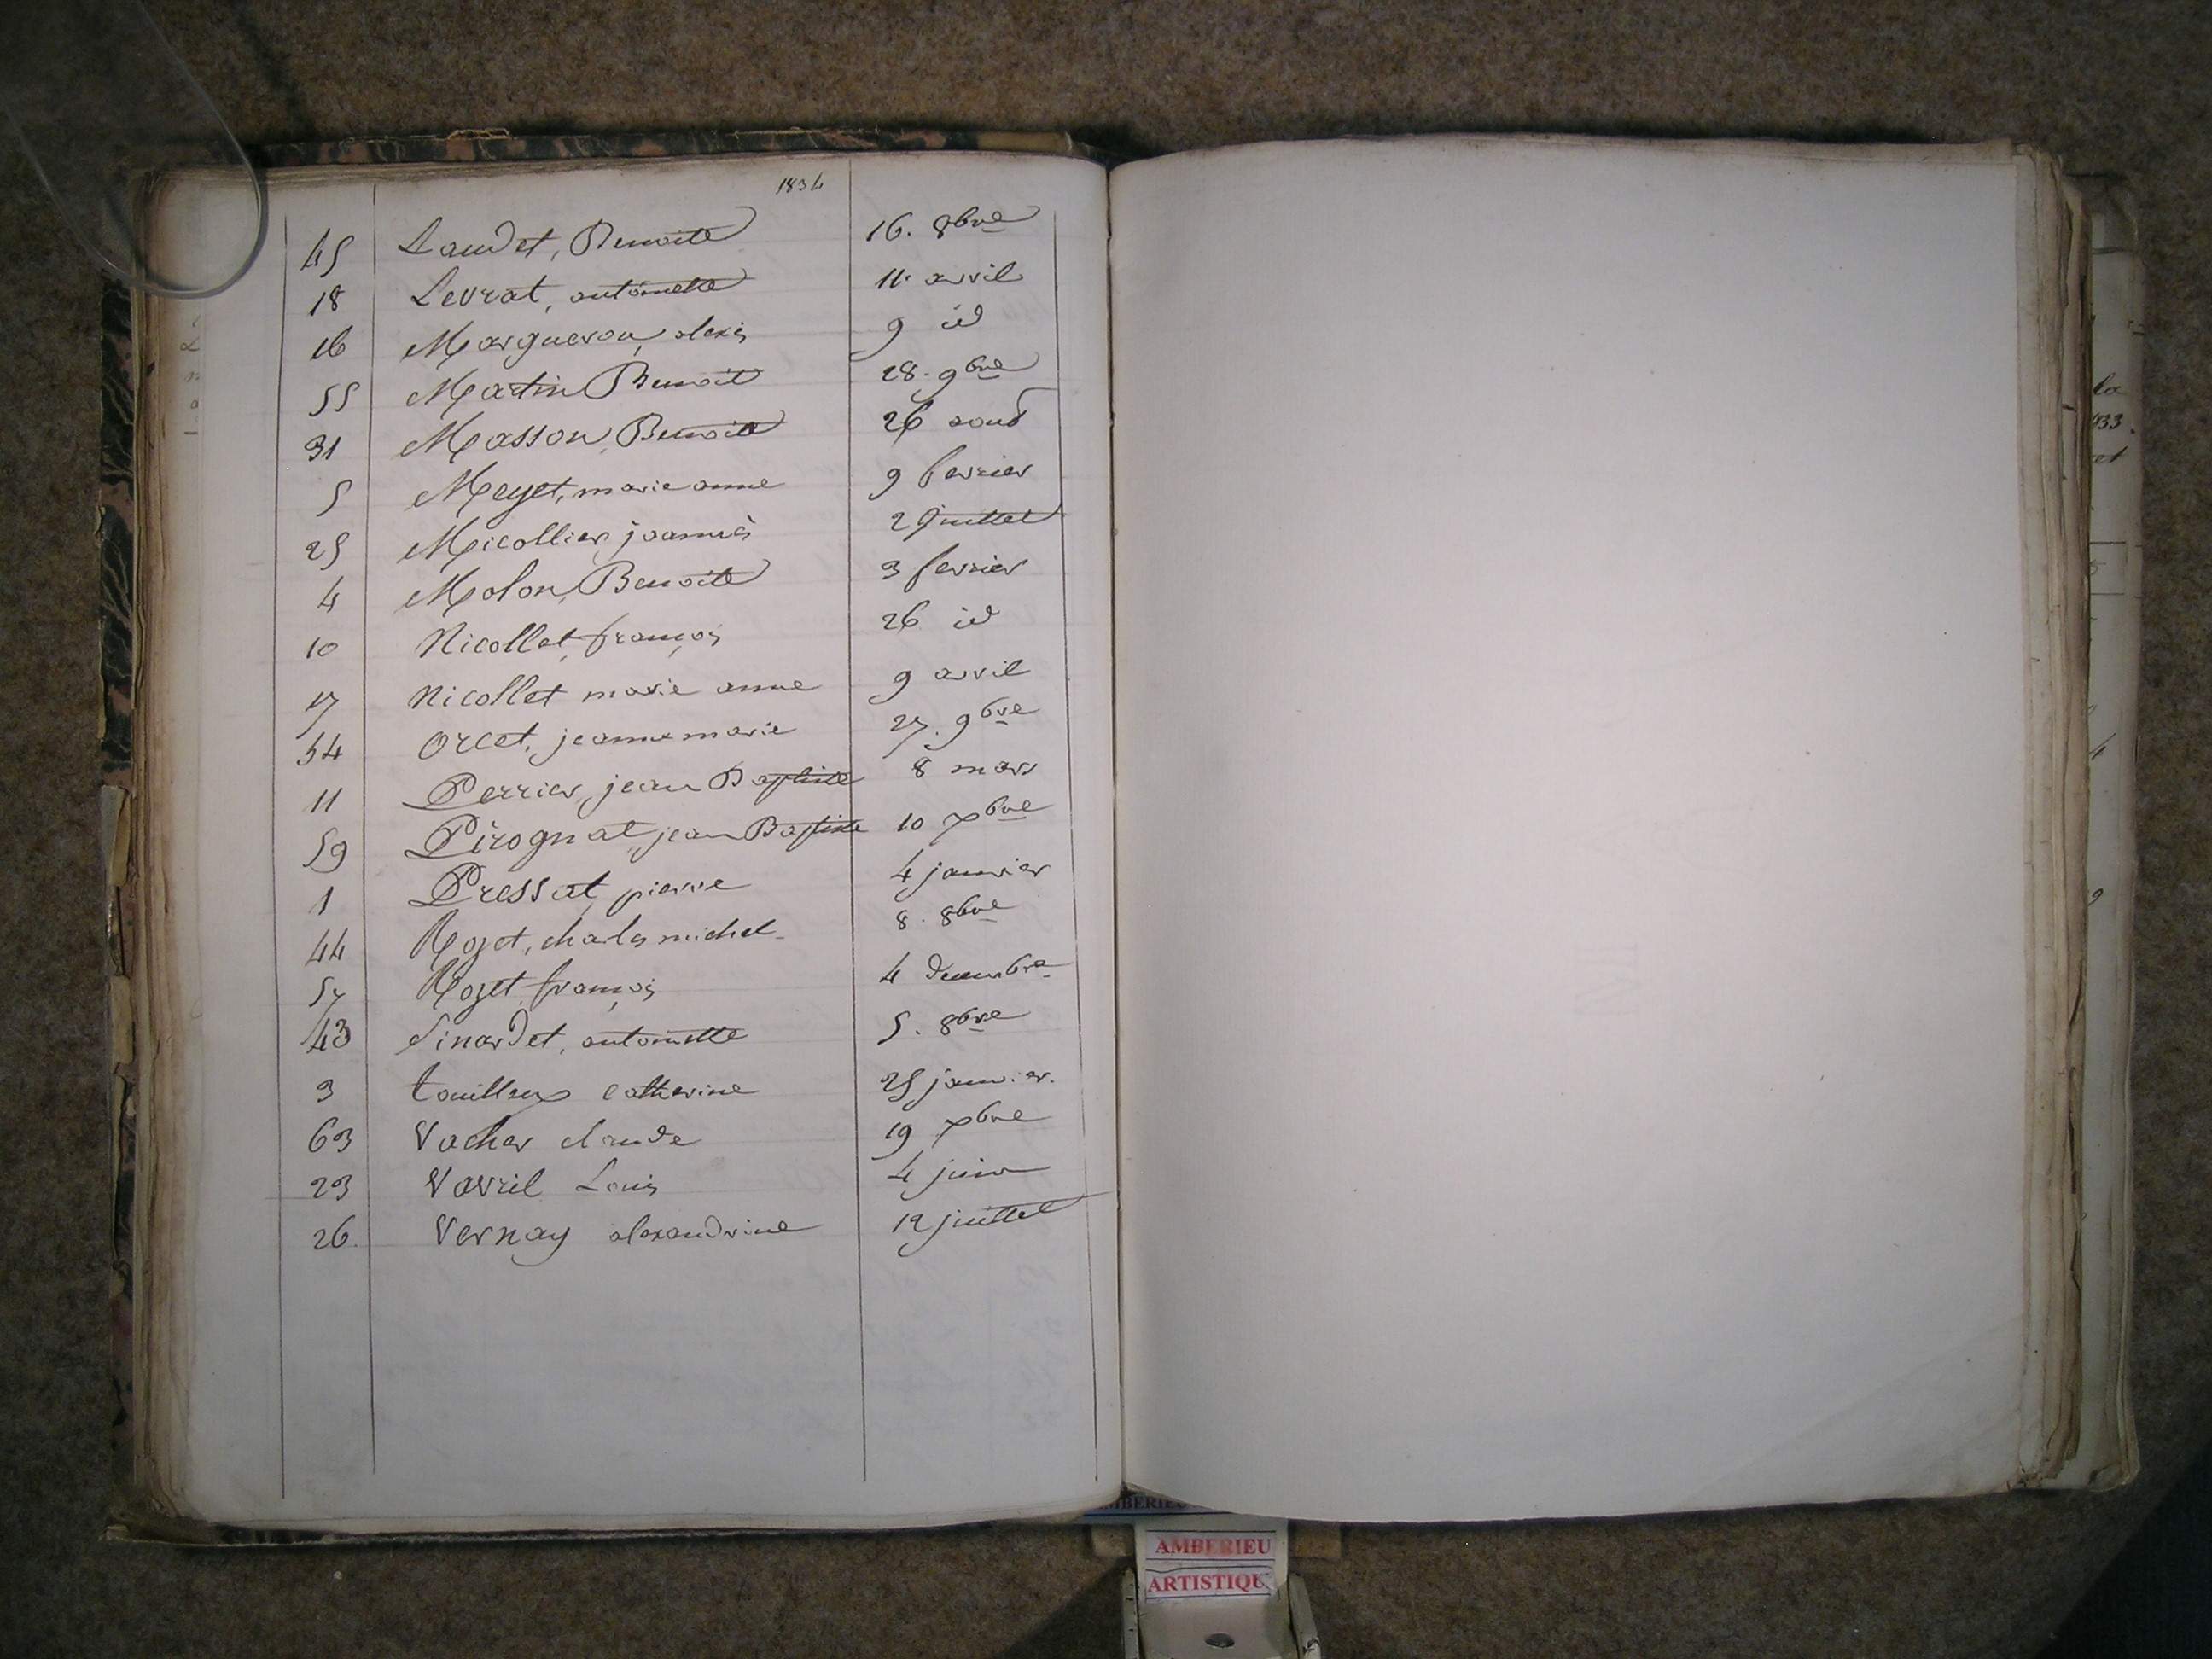 1834
45 Laudet, Benoite 16. 8bre
18 Levrat, antoinette 11 avril
16 Margueron, alexis 9 id
55 Martin Benoit 28. 9bre
31 Masson, Benoit 26 aout
5 Meyet, marie anne 9 fevrier
25 Micollier, joannès 2 Juillet
4 Molon, Benoite 3 fevrier
10 Nicollet, françois 26 id
17 Nicollet marie anne 9 avril
54 Orcet, jeanne marie 27. 9bre
11 Perrier, jean Baptiste 8 mars
59 Pirognat, jean Baptiste 10 xbre
1 Pressat, pierre 4 janvier
44 Rozet, charles michel 8. 8bre
57 Rozet, françois 4 decembre
43 Sinardet, antoinette 5. 8bre
3 touilleux catherine 25 janvier.
63 Vacher claude 19 xbre
23 Vavril Louis 4 juin
26 Vernay alexandrine 12 juillet
la
1833.
et
AMBERIEU
AMBERIEU
ARTISTIQU